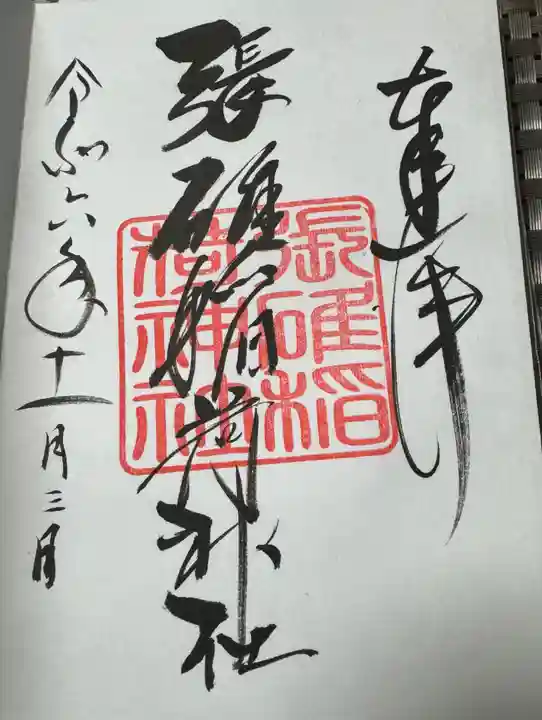 奉拝
張碓稲荷神社
張碓稲
荷神社
令和六年十一月三日